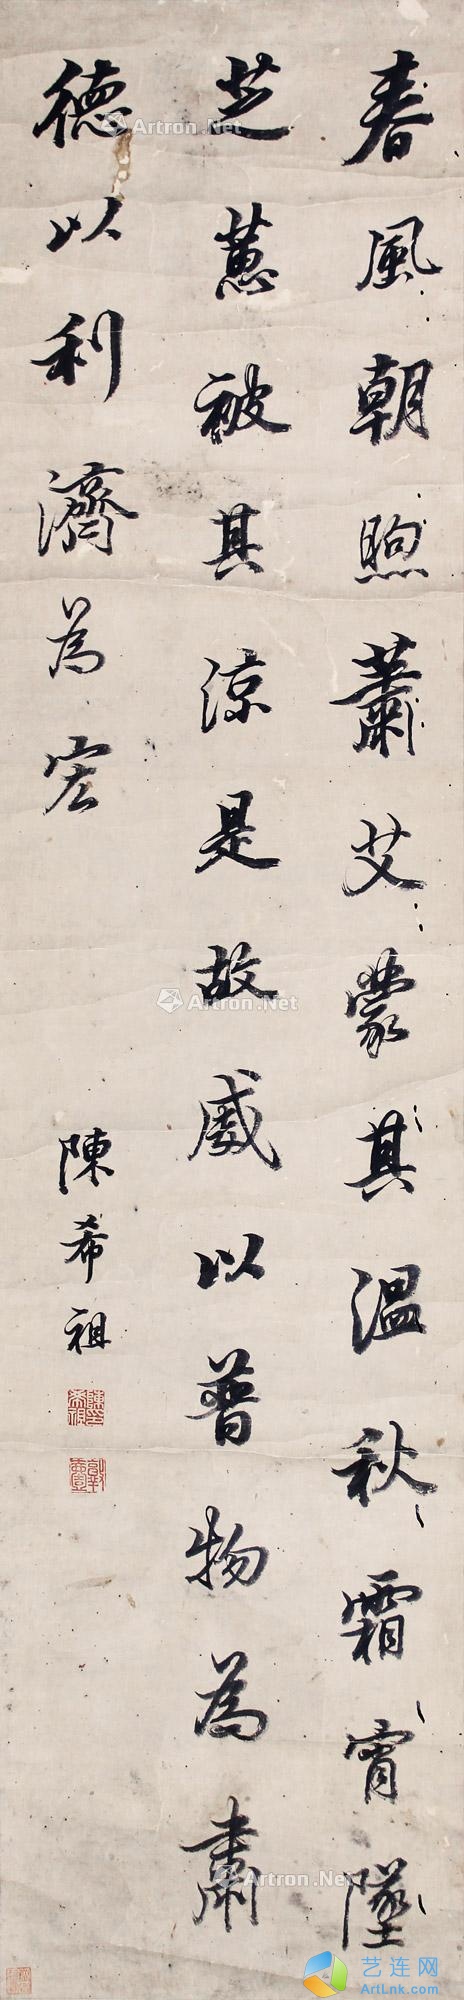 春風朝煦蕭艾蒙其温秋霜宵墜
芝蕙被其涼是故威以普物為肅
德以利濟為宏
陳希祖
Artron.Net
Artron.Net
Artron.Net
艺连网
ArtLnk.com